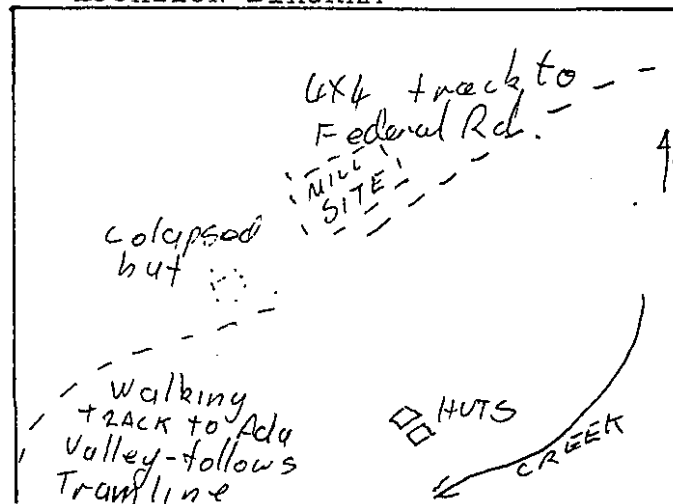 4X4 track to
Federal Rd.
MILL
SITE
Colapsed
hut
Walking
TRACK to Ada
Valley-follows
Tramline
HUTS
CREEK